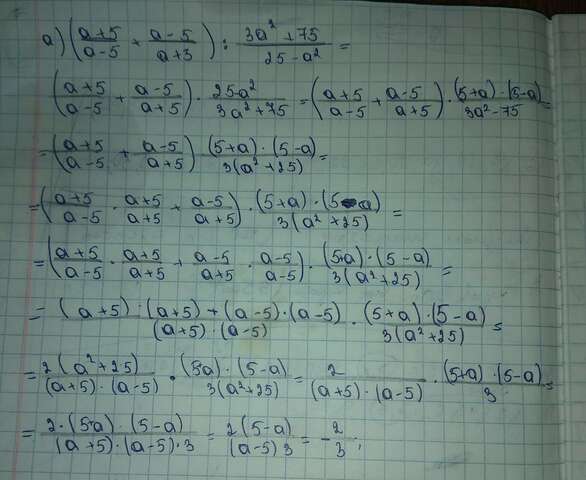 a) ((a+5)/(a-5) + (a-5)/(a+3)) : (3a² + 75)/(25 - a²) =
((a+5)/(a-5) + (a-5)/(a+5)) · (25-a²)/(3a²+75) = ((a+5)/(a-5) + (a-5)/(a+5)) · ((5+a)·(5-a))/(3a²-75) =
= ((a+5)/(a-5) + (a-5)/(a+5)) ((5+a)·(5-a))/(3(a²+25)) =
= ((a+5)/(a-5) · (a+5)/(a+5) + (a-5)/(a+5)) · ((5+a)·(5-a))/(3(a²+25)) =
= ((a+5)/(a-5) · (a+5)/(a+5) + (a-5)/(a+5) · (a-5)/(a-5)) · ((5+a)·(5-a))/(3(a²+25)) =
= ((a+5)·(a+5)+(a-5)·(a-5))/((a+5)·(a-5)) · ((5+a)·(5-a))/(3(a²+25)) =
= (2(a²+25))/((a+5)·(a-5)) · ((5a)·(5-a))/(3(a²+25)) = 2/((a+5)·(a-5)) · ((5+a)·(5-a))/3 =
= (2·(5a)·(5-a))/((a+5)·(a-5)·3) = (2(5-a))/((a-5)3) = -2/3;